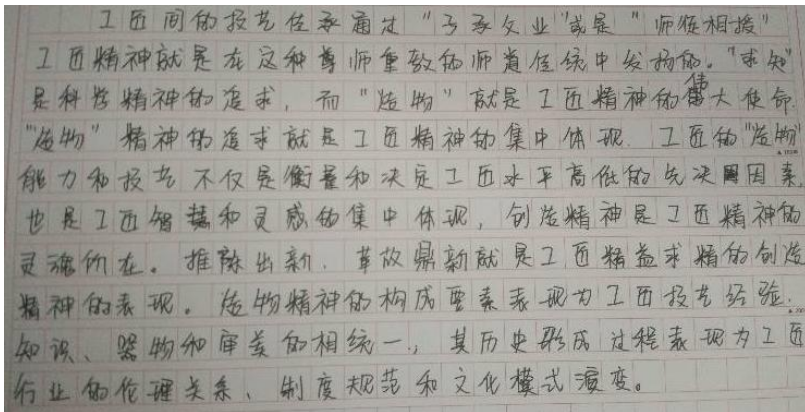 工匠间的技艺传承通过“子承父业”或是“师徒相授”
工匠精神就是在这种尊师重教的师道传统中发扬的。“求知”
是科学精神的追求，而“造物”就是工匠精神的伟大使命.
“造物”精神的追求就是工匠精神的集中体现. 工匠的“造物”
能力和技艺不仅是衡量和决定工匠水平高低的先决因素,
也是工匠智慧和灵感的集中体现，创造精神是工匠精神的
灵魂所在。推陈出新、革故鼎新就是工匠精益求精的创造
精神的表现。造物精神的构成要素表现为工匠技艺经验.
知识、器物和审美的相统一，其历史形成过程表现为工匠
行业的伦理关系、制度规范和文化模式演变。